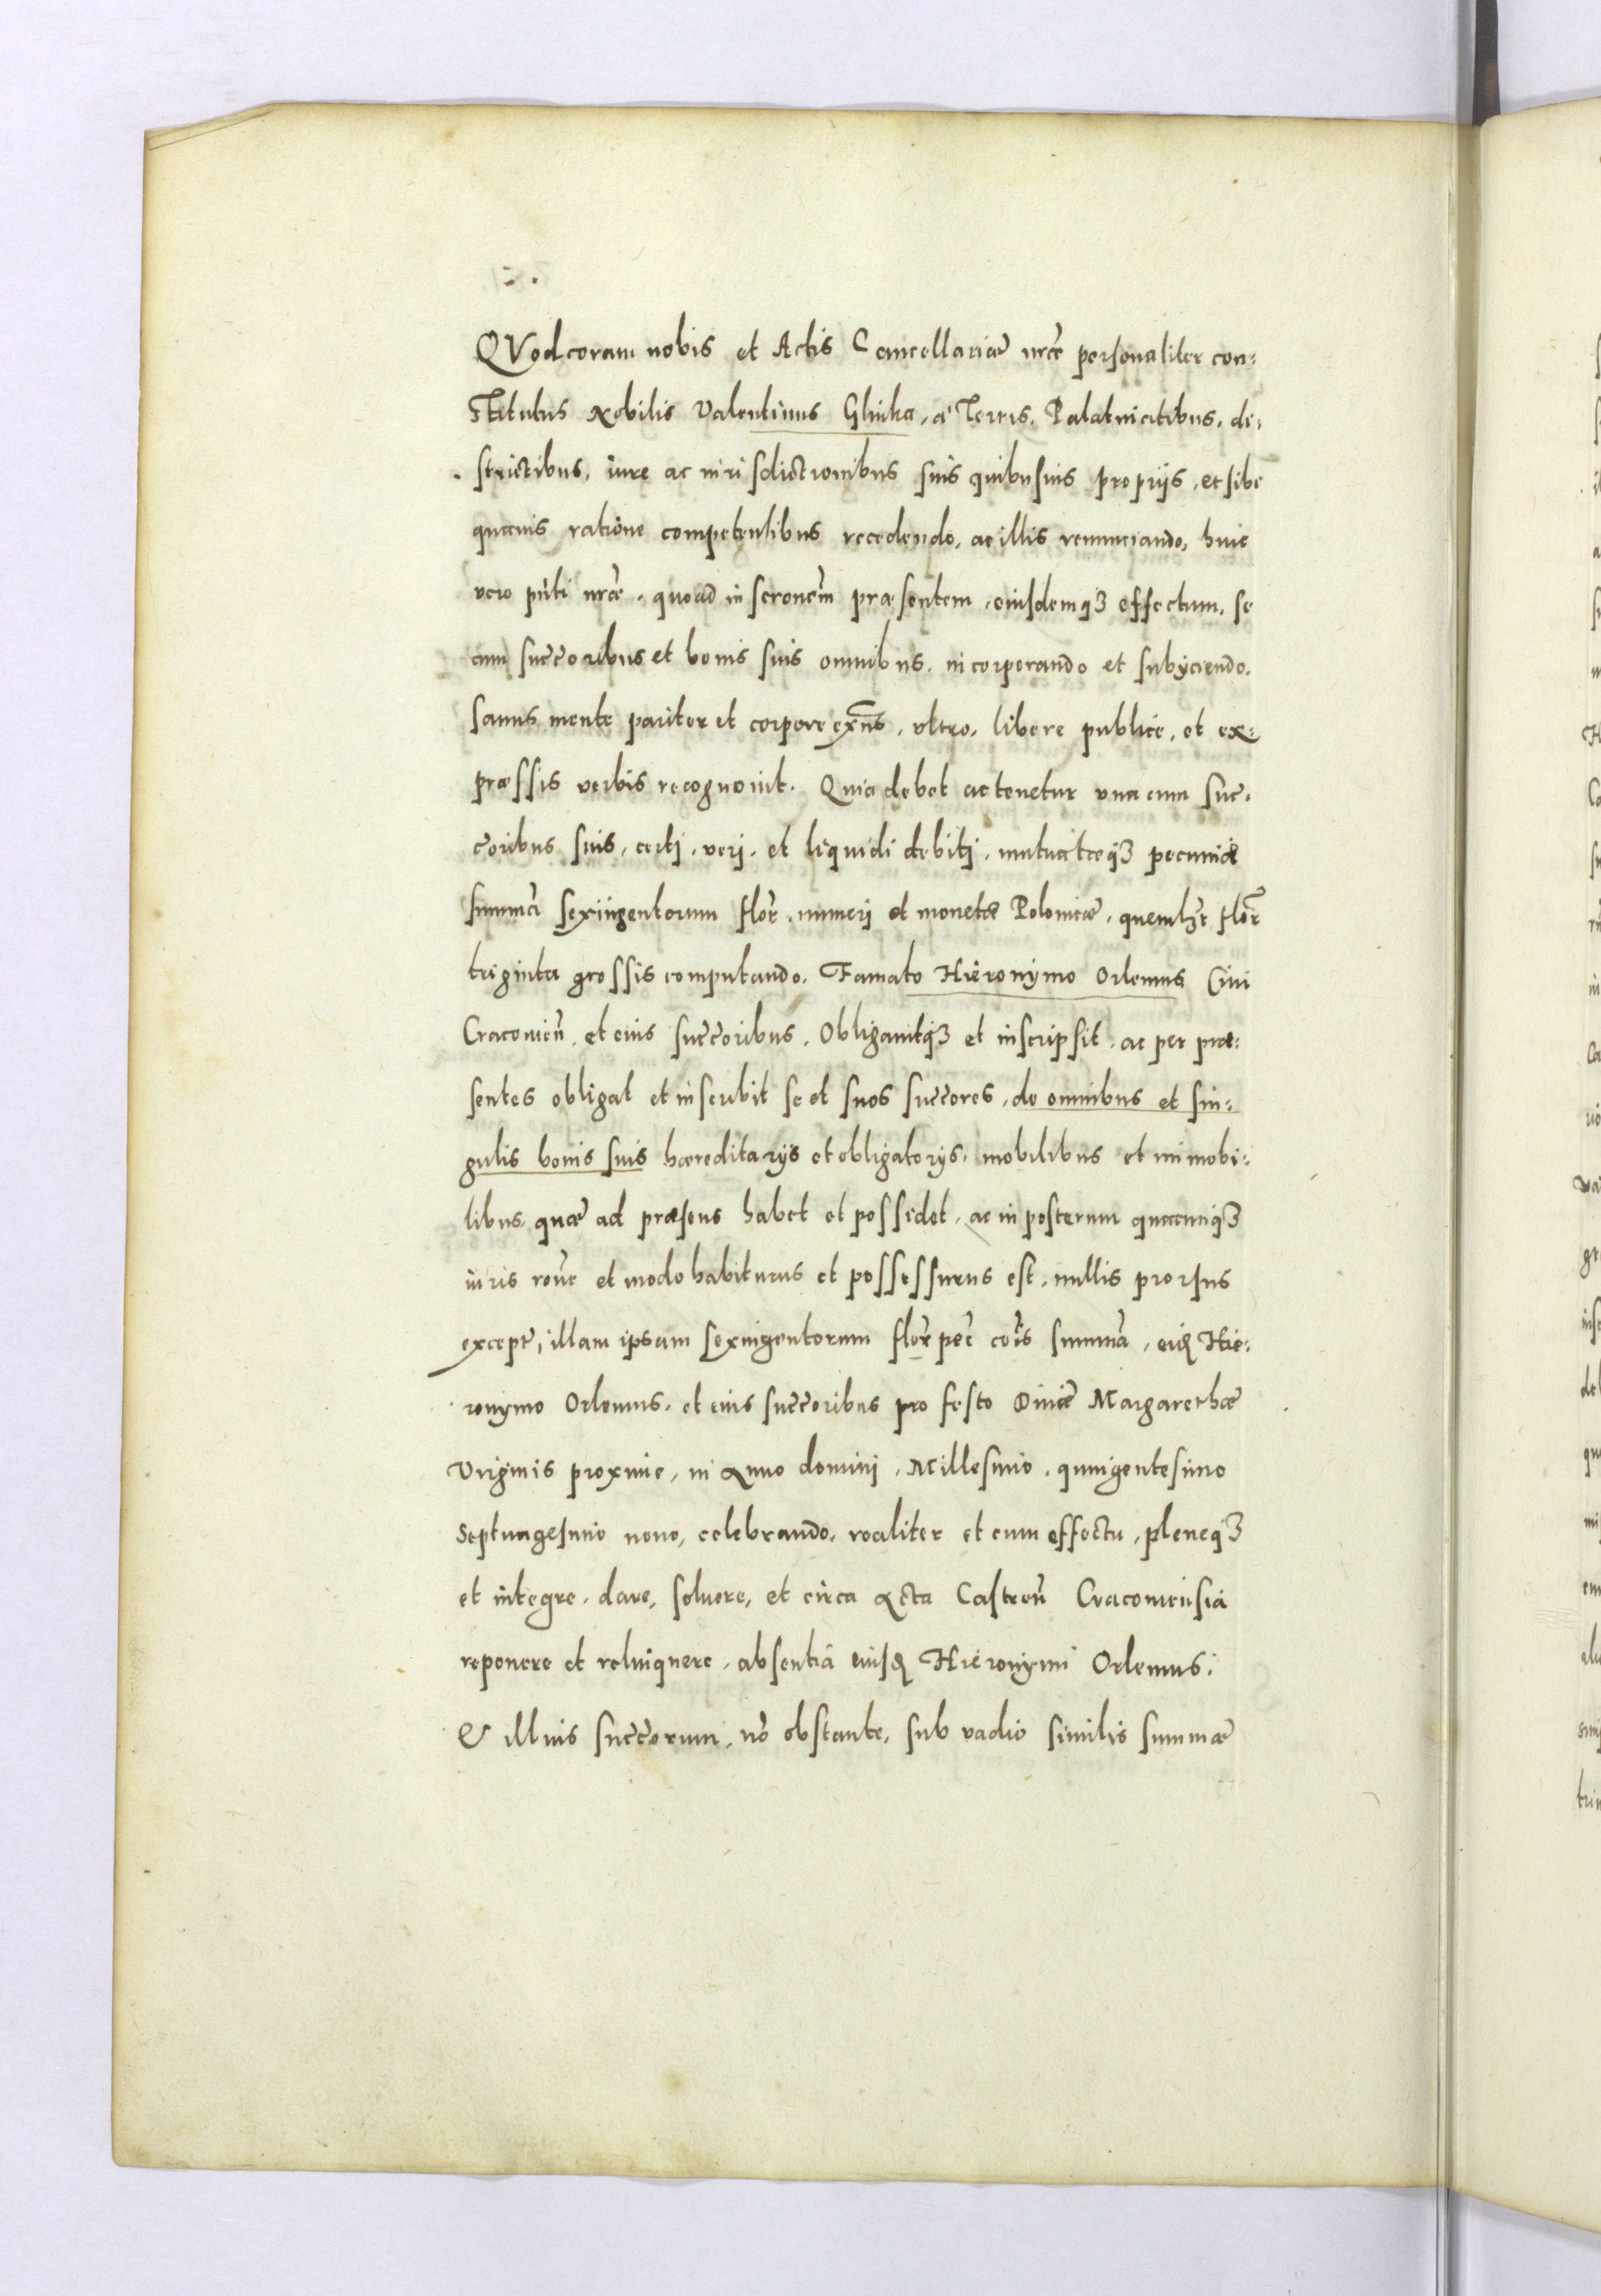 QVod coram nobis et Actis Cancellariæ nr̃æ personaliter con:
stitutus Nobilis Valentinus Glinka, a Terris, Palatinatibus, di:
strictibus, iure ac iurisdictionibus suis quibusuis proprijs, et sibi
quauis ratione competentibus recedendo, ac illis renunciando, huic
vero pñti nr̃æ, quoad inscronem̃ præsentem, eiusdemq3 effectum, se
cum succ̃oribus et bonis suis omnibus, incorporando et subijciendo.
sanus mente pariter et corpore exñs, vltro, libere publice, et ex:
præssis verbis recognouit. Quia debet ac tenetur vna cum suc:
c̃oribus suis, certj, verj, et liquidi debitj, mutuatæq3 pecuniæ
summã sexingentorum flor̃, numerj et monetæ Polonicæ, quemlꝫt flor̃
triginta grossis computando. Famato Hieronymo Orlemus Ciui
Cracouieñ, et eius succ̃oribus, Obligauitq3 et inscripsit, ac per præ:
sentes obligat et inscribit se et suos succ̃ores, de omnibus et sin:
gulis bonis suis hæreditarijs et obligatorijs, mobilibus et immobi:
libus, quæ ad præsens habet et possidet, ac in posterum quacunq3
iuris roñe et modo habiturus et possessurus est, nullis prorsus
except̃, illam ipsam sexingentorum flor̃ pec̃ cõis summã, eid Hie:
ronymo Orlemus, et eius succ̃oribus pro festo Diuæ Margarethæ
Virginis proxime, in Anno dominj, Millesimo, quingentesimo
septuagesimo nono, celebrando, realiter et cum effectu, pleneq3
et integre, dare, soluere, et circa Acta Castreñ Cracouiensia
reponere et relinquere, absentia eiusd Hieronymi Orlemus,
& illius succ̃orum, nõ obstante, sub vadio similis summæ